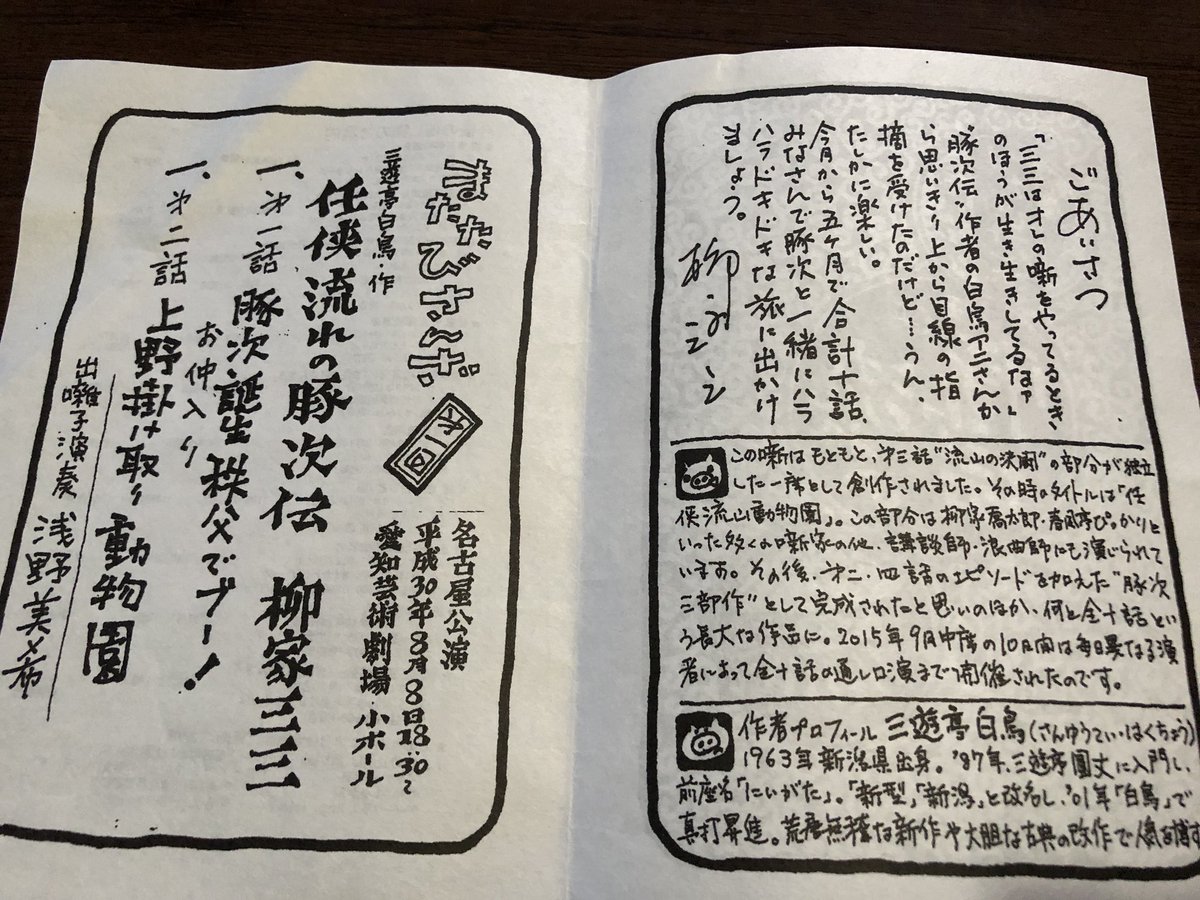 ごあいさつ
「三三はオレの噺をやってるとき
のほうが生き生きしてるなァ」
〝豚次伝〟作者の白鳥アニさんか
ら思いきり上から目線の指
摘を受けたのだけど…うん、
たしかに楽しい。
今月から五ヶ月で合計十話、
みなさんで豚次と一緒にハラ
ハラドキドキな旅に出かけ
ましょう。
柳家三三
この噺はもともと、第三話“流山の決闘”の部分が独立
した一席として創作されました。その時のタイトルは「任
侠流山動物園」。この部分は柳家喬太郎・春風亭ぴっかりと
いった多くの噺家の他、講談師・浪曲師にも演じられて
います。その後、第二、四話のエピソードを加えた“豚次
三部作”として完成されたと思いのほか、何と全十話とい
う長大な作品に。2015年9月中席の10日間は毎日異なる演
者によって全十話の通し口演まで開催されたのです。
作者プロフィール 三遊亭白鳥(さんゆうてい・はくちょう)
1963年新潟県出身。'87年、三遊亭圓丈に入門し、
前座名「にいがた」。「新型」「新潟」と改名し、'01年「白鳥」で
真打昇進。荒唐無稽な新作や大胆な古典の改作で人気を博す
またたびさんざ 第一回
名古屋公演
平成30年8月8日18:30〜
愛知芸術劇場 小ホール
三遊亭白鳥・作
任侠流れの豚次伝 柳家三三
一、第一話 豚次誕生 秩父でブー!
お仲入り
一、第二話 上野掛け取り動物園
出囃子演奏 浅野美希